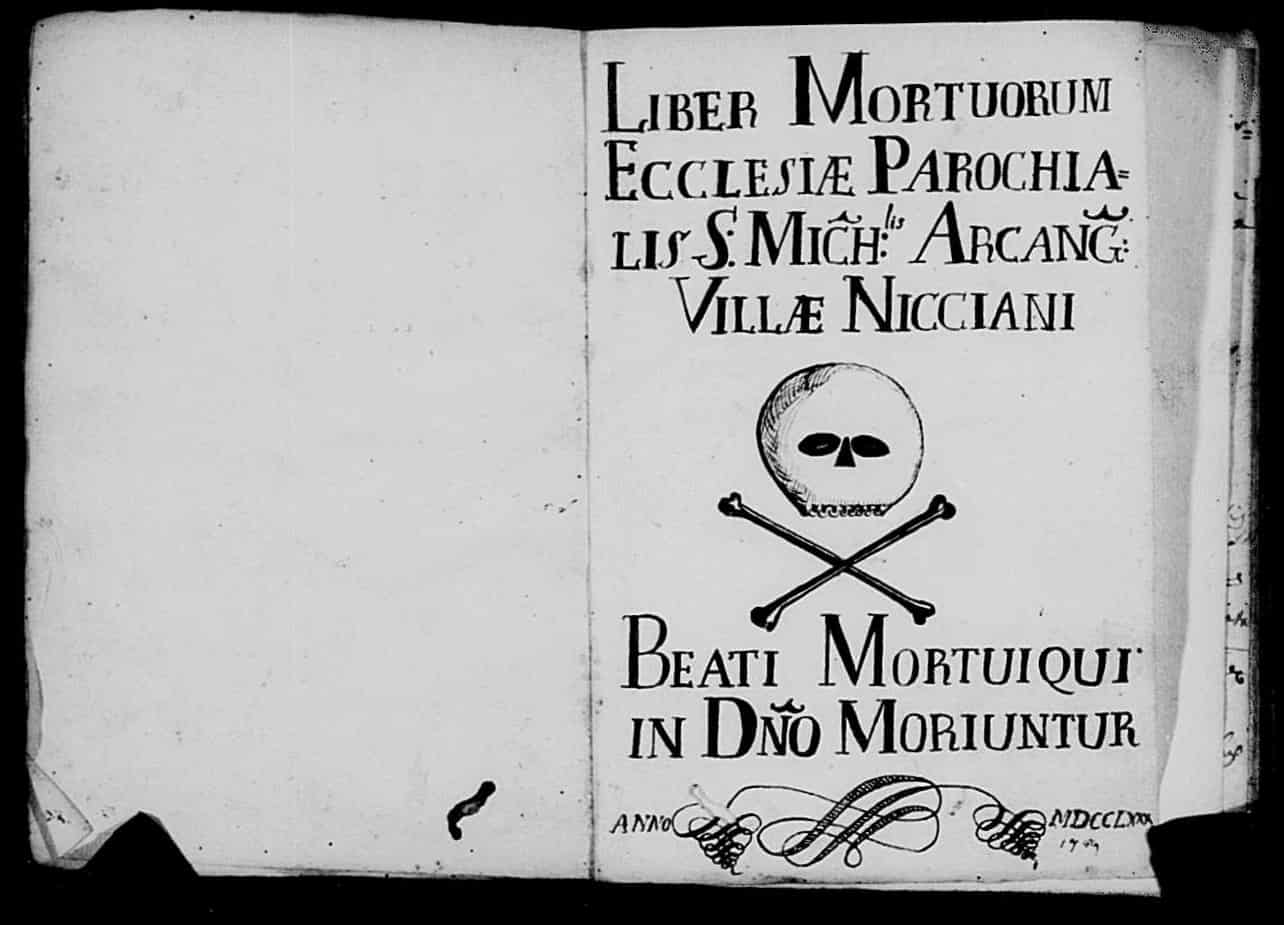 LIBER MORTUORUM
ECCLESIÆ PAROCHIA=
LIS S: MICH:lis ARCANG:
VILLÆ NICCIANI
BEATI MORTUI QUI
IN DÑO MORIUNTUR
ANNO MDCCLXXX